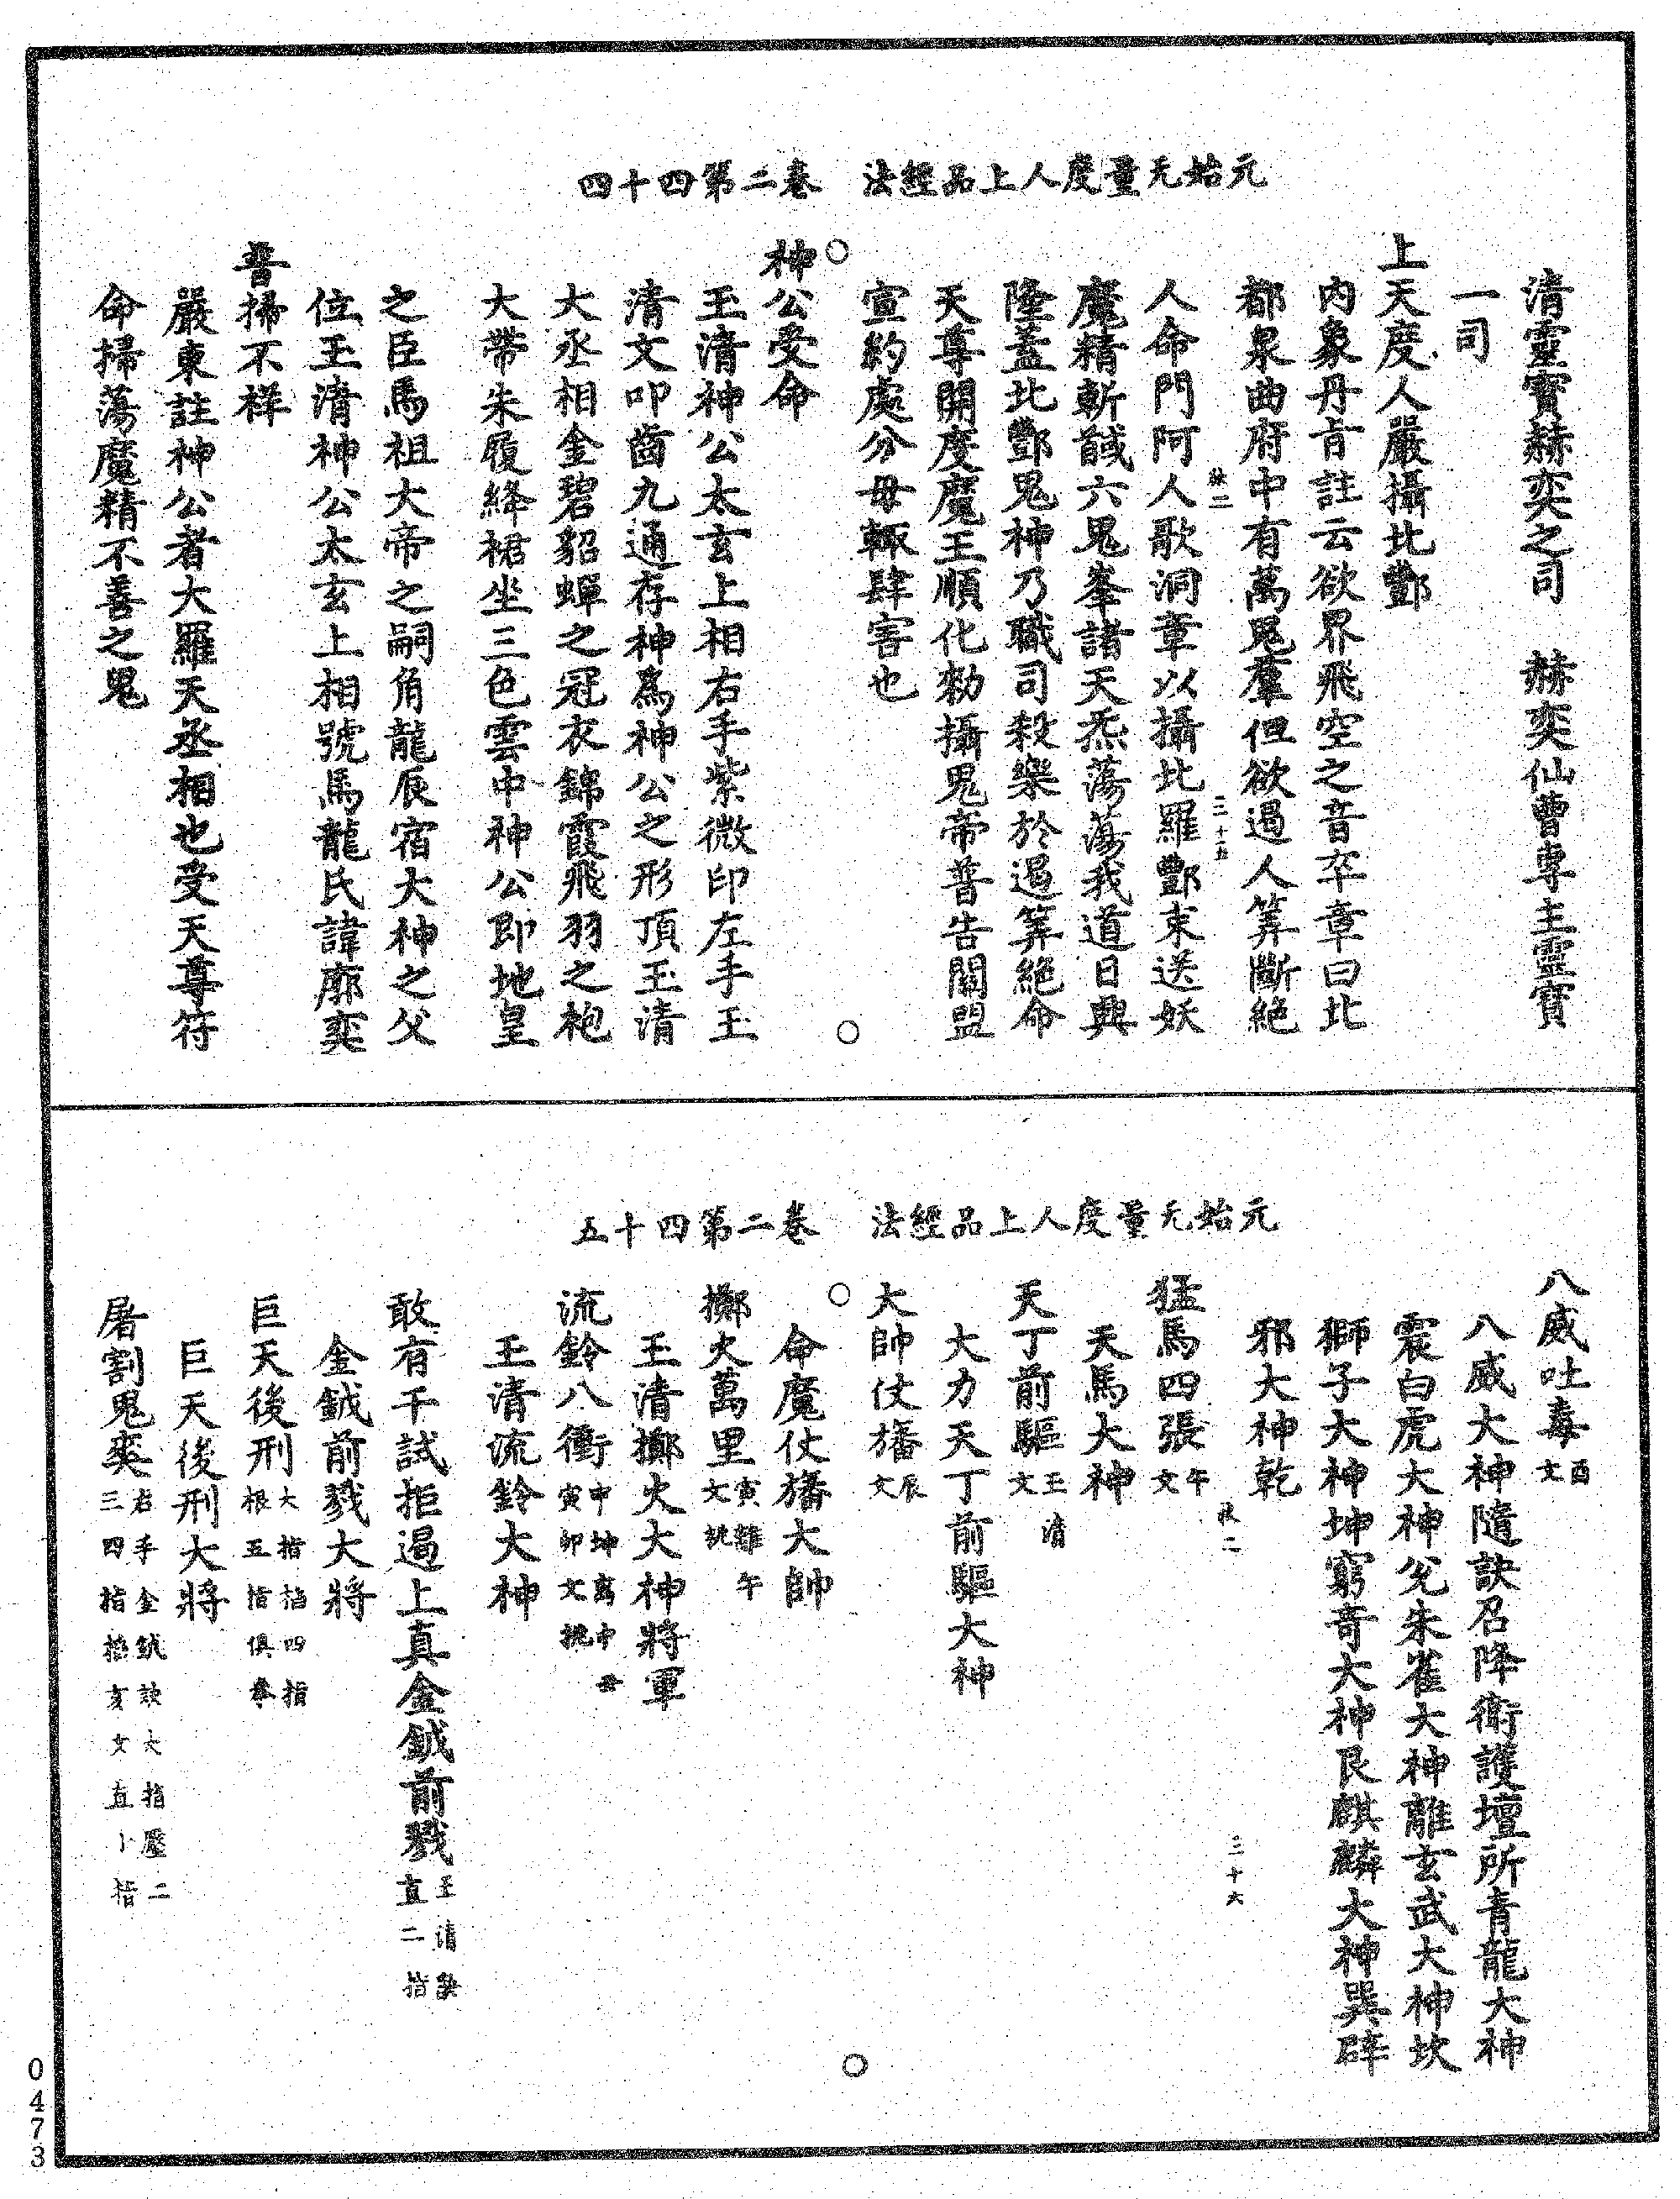 元始无量度人上品經法　卷二第四十四
清靈寶赫奕之司　赫奕仙曹專主靈寶
一司
上天度人嚴攝北酆
內象丹旨註云欲界飛空之音卒章曰北
都泉曲府中有萬鬼羣但欲遏人筭斷絕
二
二十五
人命門阿人歌洞章以攝北羅酆束送妖
魔精斬馘六鬼峯諸天炁蕩蕩我道日興
隆蓋北酆鬼神乃職司殺樂於遏筭絕命
天尊開度魔王順化勑攝鬼帝普告關盟
宣約處分毋輒肆害也
神公受命
玉清神公太玄上相右手紫微印左手玉
清文叩齒九通存神爲神公之形頂玉清
大丞相金碧貂蟬之冠衣錦霞飛羽之袍
大帶朱履絳裙坐三色雲中神公即地皇
之臣馬祖大帝之嗣角龍辰宿大神之父
位玉清神公太玄上相號馬龍氏諱廓奕
普掃不祥
嚴東註神公者大羅天丞相也受天尊符
命掃蕩魔精不善之鬼
元始无量度人上品經法　卷二第四十五
八威吐毒酉文
八威大神隨訣召降衛護壇所青龍大神
震白虎大神兌朱雀大神離玄武大神坎
獅子大神坤窮奇大神艮麒麟大神巽辟
邪大神乾
二
二十六
猛馬四張午文
天馬大神
天丁前驅玉清文
大力天丁前驅大神
大帥仗旛辰文
命魔仗旛大帥
擲火萬里寅離午文挑
玉清擲火大神將軍
流鈴八衝中坤寅卯文挑
玉清流鈴大神
敢有干試拒遏上真金鉞前戮玉清訣直二指
金鉞前戮大將
巨天後刑大指掐四指根五指俱拳
巨天後刑大將
屠割鬼爽右手金鉞訣大指壓二三四指掐亥文直小指
0473